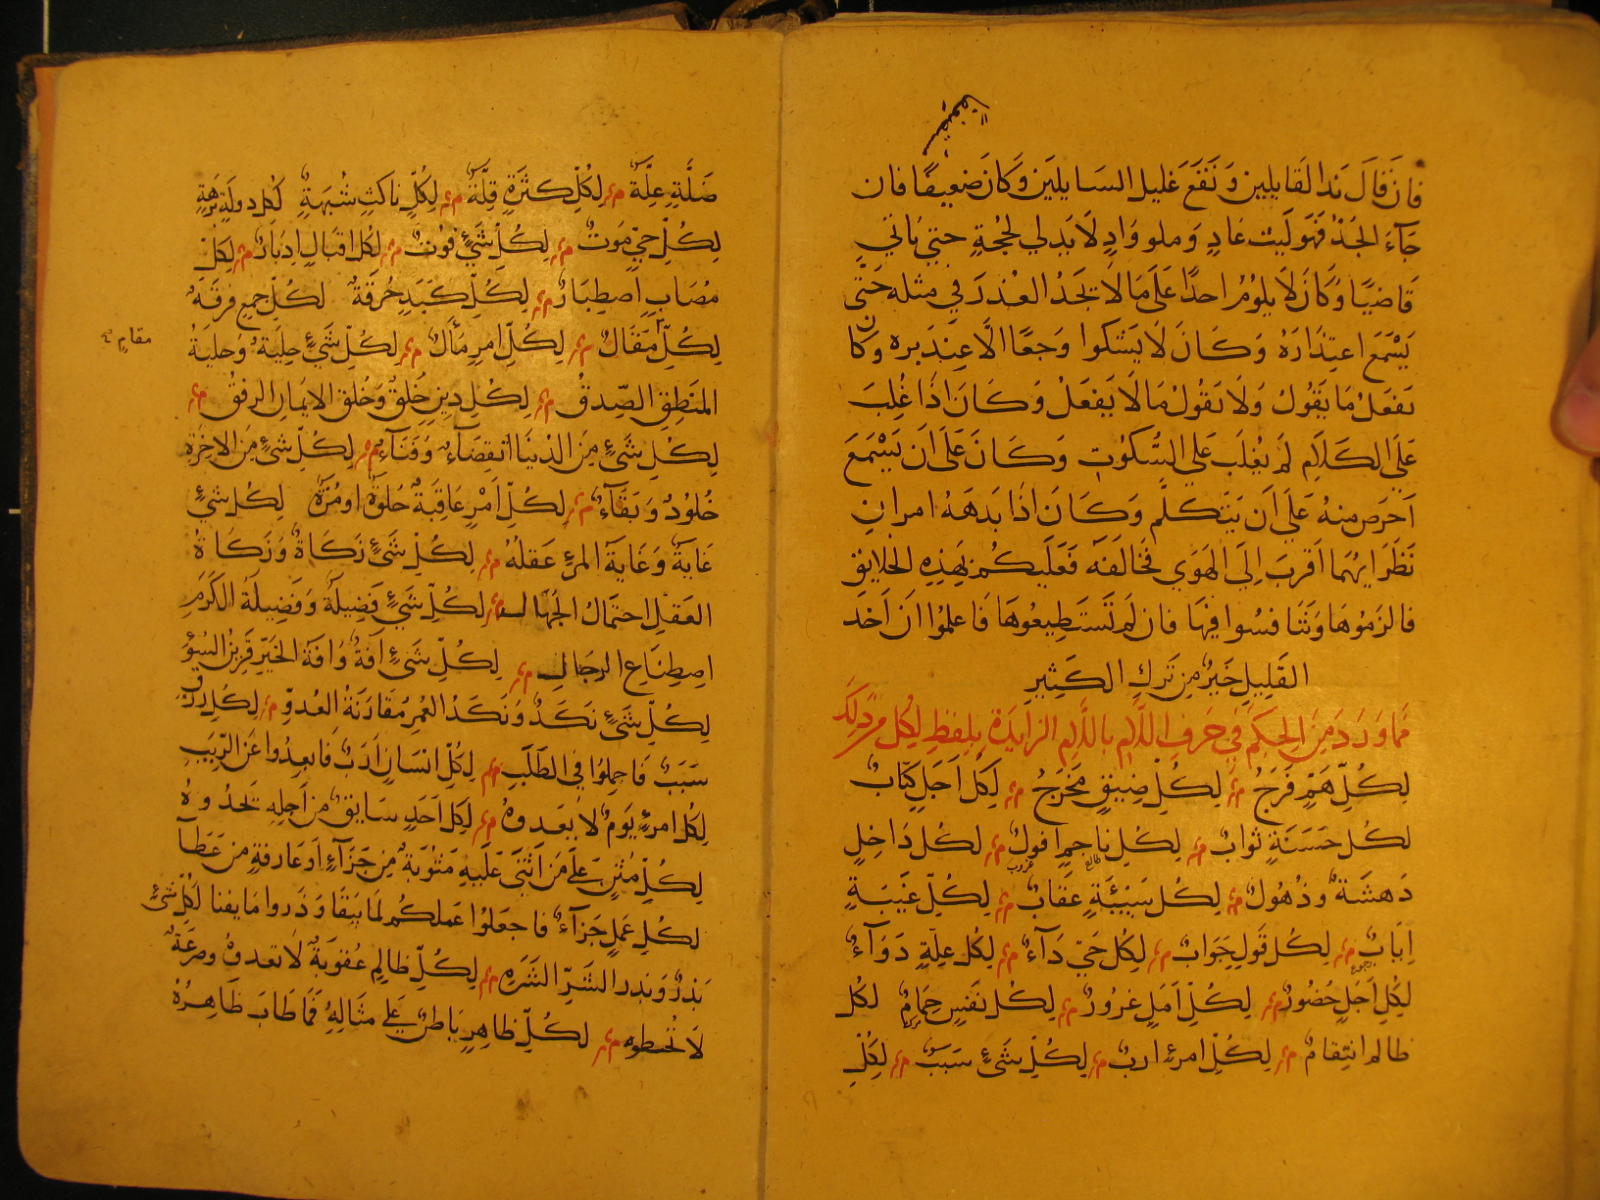 مستضعفا
فان قال بذ القايلين ونقع غليل السايلين وكان ضعيفا فان
جآء الجد فهو ليث عاد وصل واد لا يدلي لحجة حتي ياتي
قاضيا وكان لا يلوم احدا علي ما لا يجد العذر في مثله حتي
يسمع اعتذاره وكان لا يشكوا وجعا الا عند بره وكان
يفعل ما يقول ولا يقول ما لا يفعل وكان اذا غلب
علي الكلام لم يغلب علي السكوت وكان علي ان يسمع
احرص منه علي ان يتكلم وكان اذا بدهه امران
نظر ايهما اقرب الي الهوي فخالفه فعليكم بهذه الخلايق
فالزموها وتنافسوا فيها فان لم تستطيعوها فاعلموا ان اخذ
القليل خير من ترك الكثير
فما ورد من الحكم في حرف اللام باللام الزايدة بلفظ لكل من ذلك
لكل هم فرج لكل ضيق مخرج لكل اجل كتاب
لكل حسنة ثواب لكل ناجم افول لكل داخل
طالع غروب
دهشة وذهول لكل سيئة عقاب لكل غيبة
اياب لكل قول جواب لكل حي دآء لكل علة دوآء
رجوع
لكل اجل حضور لكل امل غرور لكل نفس حمام لكل
ظالم انتقام لكل امرء ارب لكل شيء سبب لكل
ضلة علة لكل كثرة قلة لكل ناكث شبهة لكل دولة برهة
لكل حي موت لكل شيء فوت لكل اقبال ادبار لكل
مصاب اصطبار لكل كبد حرقة لكل جمع فرقة
لكل مقال لكل امر مآل لكل شيء حلية وحلية
مقام
المنطق الصدق لكل دين خلق وخلق الايمان الرفق
لكل شيء من الدنيا انقضآء وفنآء لكل شيء من الاخرة
خلود وبقآء لكل امر عاقبة حلوة او مرة لكل شيء
غاية وغاية المرء عقله لكل شيء زكاة وزكاة
العقل احتمال الجهال لكل شيء فضيلة وفضيلة الكرم
اصطناع الرجال لكل شيء آفة وافة الخير قرين السوء
لكل شيء نكد ونكد العمر مقارنة العدو لكل رزق
سبب فاجملوا في الطلب لكل انسان ادب فابعدوا عن الريب
لكل امرء يوم لا يعدوه لكل احد سايق من اجله يحدوه
لكل مثن علي من اثني عليه مثوبة من جزآء او عارفة من عطآ
لكل عمل جزآء فاجعلوا عملكم لما يبقا وذروا ما يفنا لكل شيء
بذر وبذر الشر الشره لكل ظالم عقوبة لا تعدوه وصرعة
لا تخطوه لكل ظاهر باطن علي مثاله فما طاب ظاهره